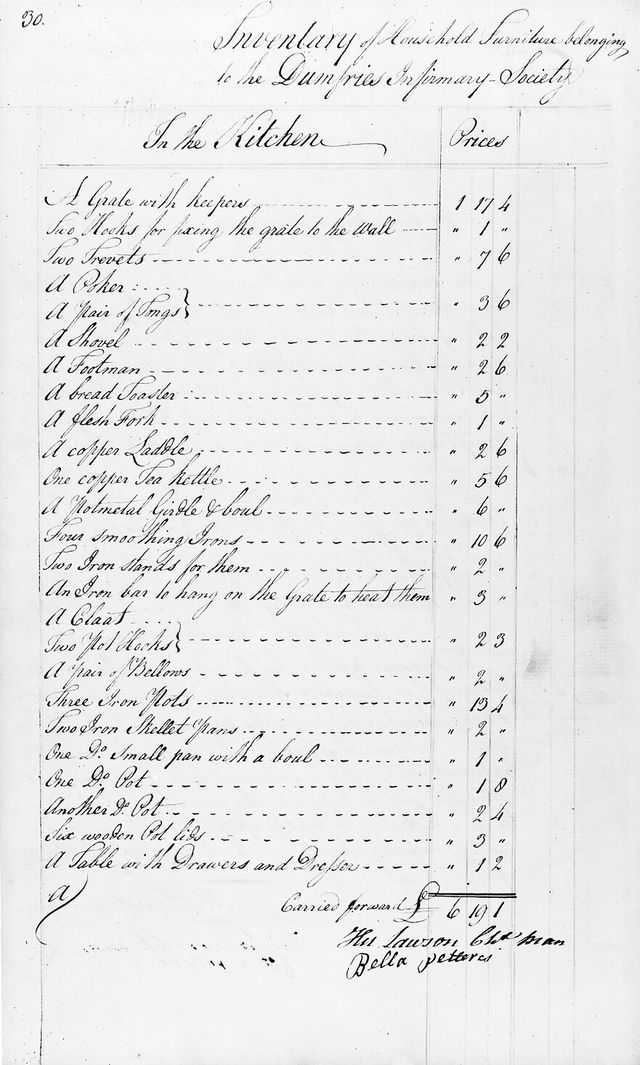 30.
Inventary of Household Furniture belonging
to the Dumfries Infirmary-Society
In the Kitchen Prices
A Grate with keepers 1 17 4
Two Hooks for fixing the grate to the Wall " 1 "
Two Trevets " 7 6
A Poker
A Pair of Tongs } " 3 6
A Shovel " 2 2
A Footman " 2 6
A bread Toaster " 5 "
A flesh Fork " 1 "
A copper Laddle " 2 6
One copper Tea kettle " 5 6
A Potmetal Girdle & boul " 6 "
Four smoothing Irons " 10 6
Two Iron stands for them " 2 "
An Iron bar to hang on the Grate to heat them " 3 "
A Claat
Two Pot Hooks } " 2 3
A pair of Bellows " 2 "
Three Iron Pots " 13 4
Two Iron Skellet Pans " 2 "
One Do. small pan with a boul " 1 "
One Do. Pot " 1 8
Another Do. Pot " 2 4
Six wooden Pot lids " 3 "
A Table with Drawers and Dresser " 12
A
Carried forward £ 6 19 1
Lawson man
Bella